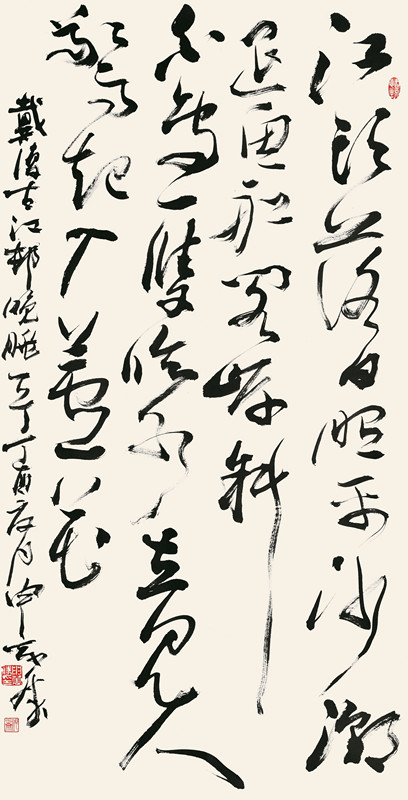 江頭落日照平沙潮
退漁船閣岸斜
白鳥一雙臨水立見人
驚起入蘆花
戴復古江邨晚眺 丁酉夏月申